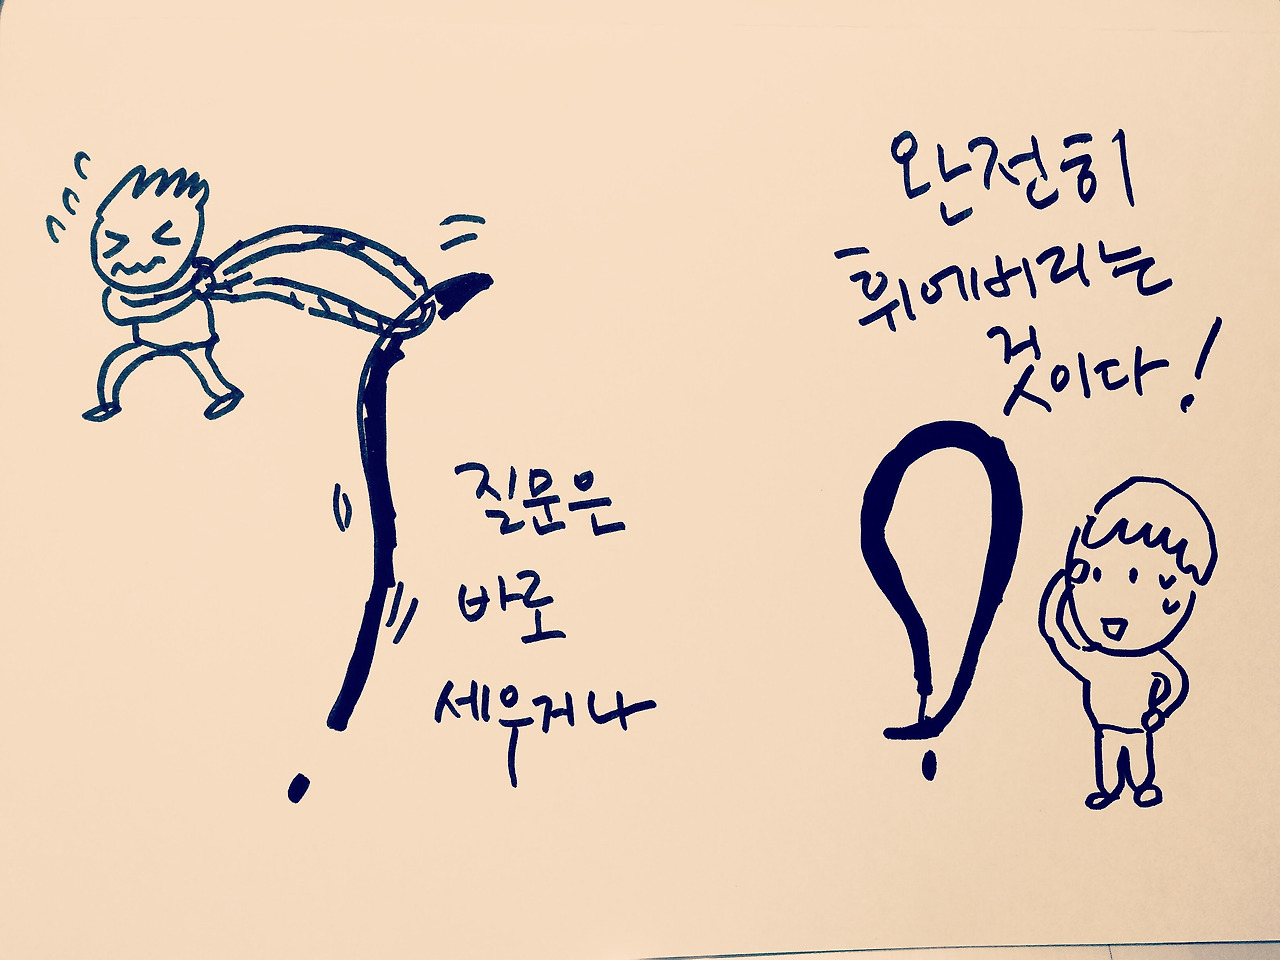 질문은
바로
세우거나
완전히
휘에버리는
것이다!